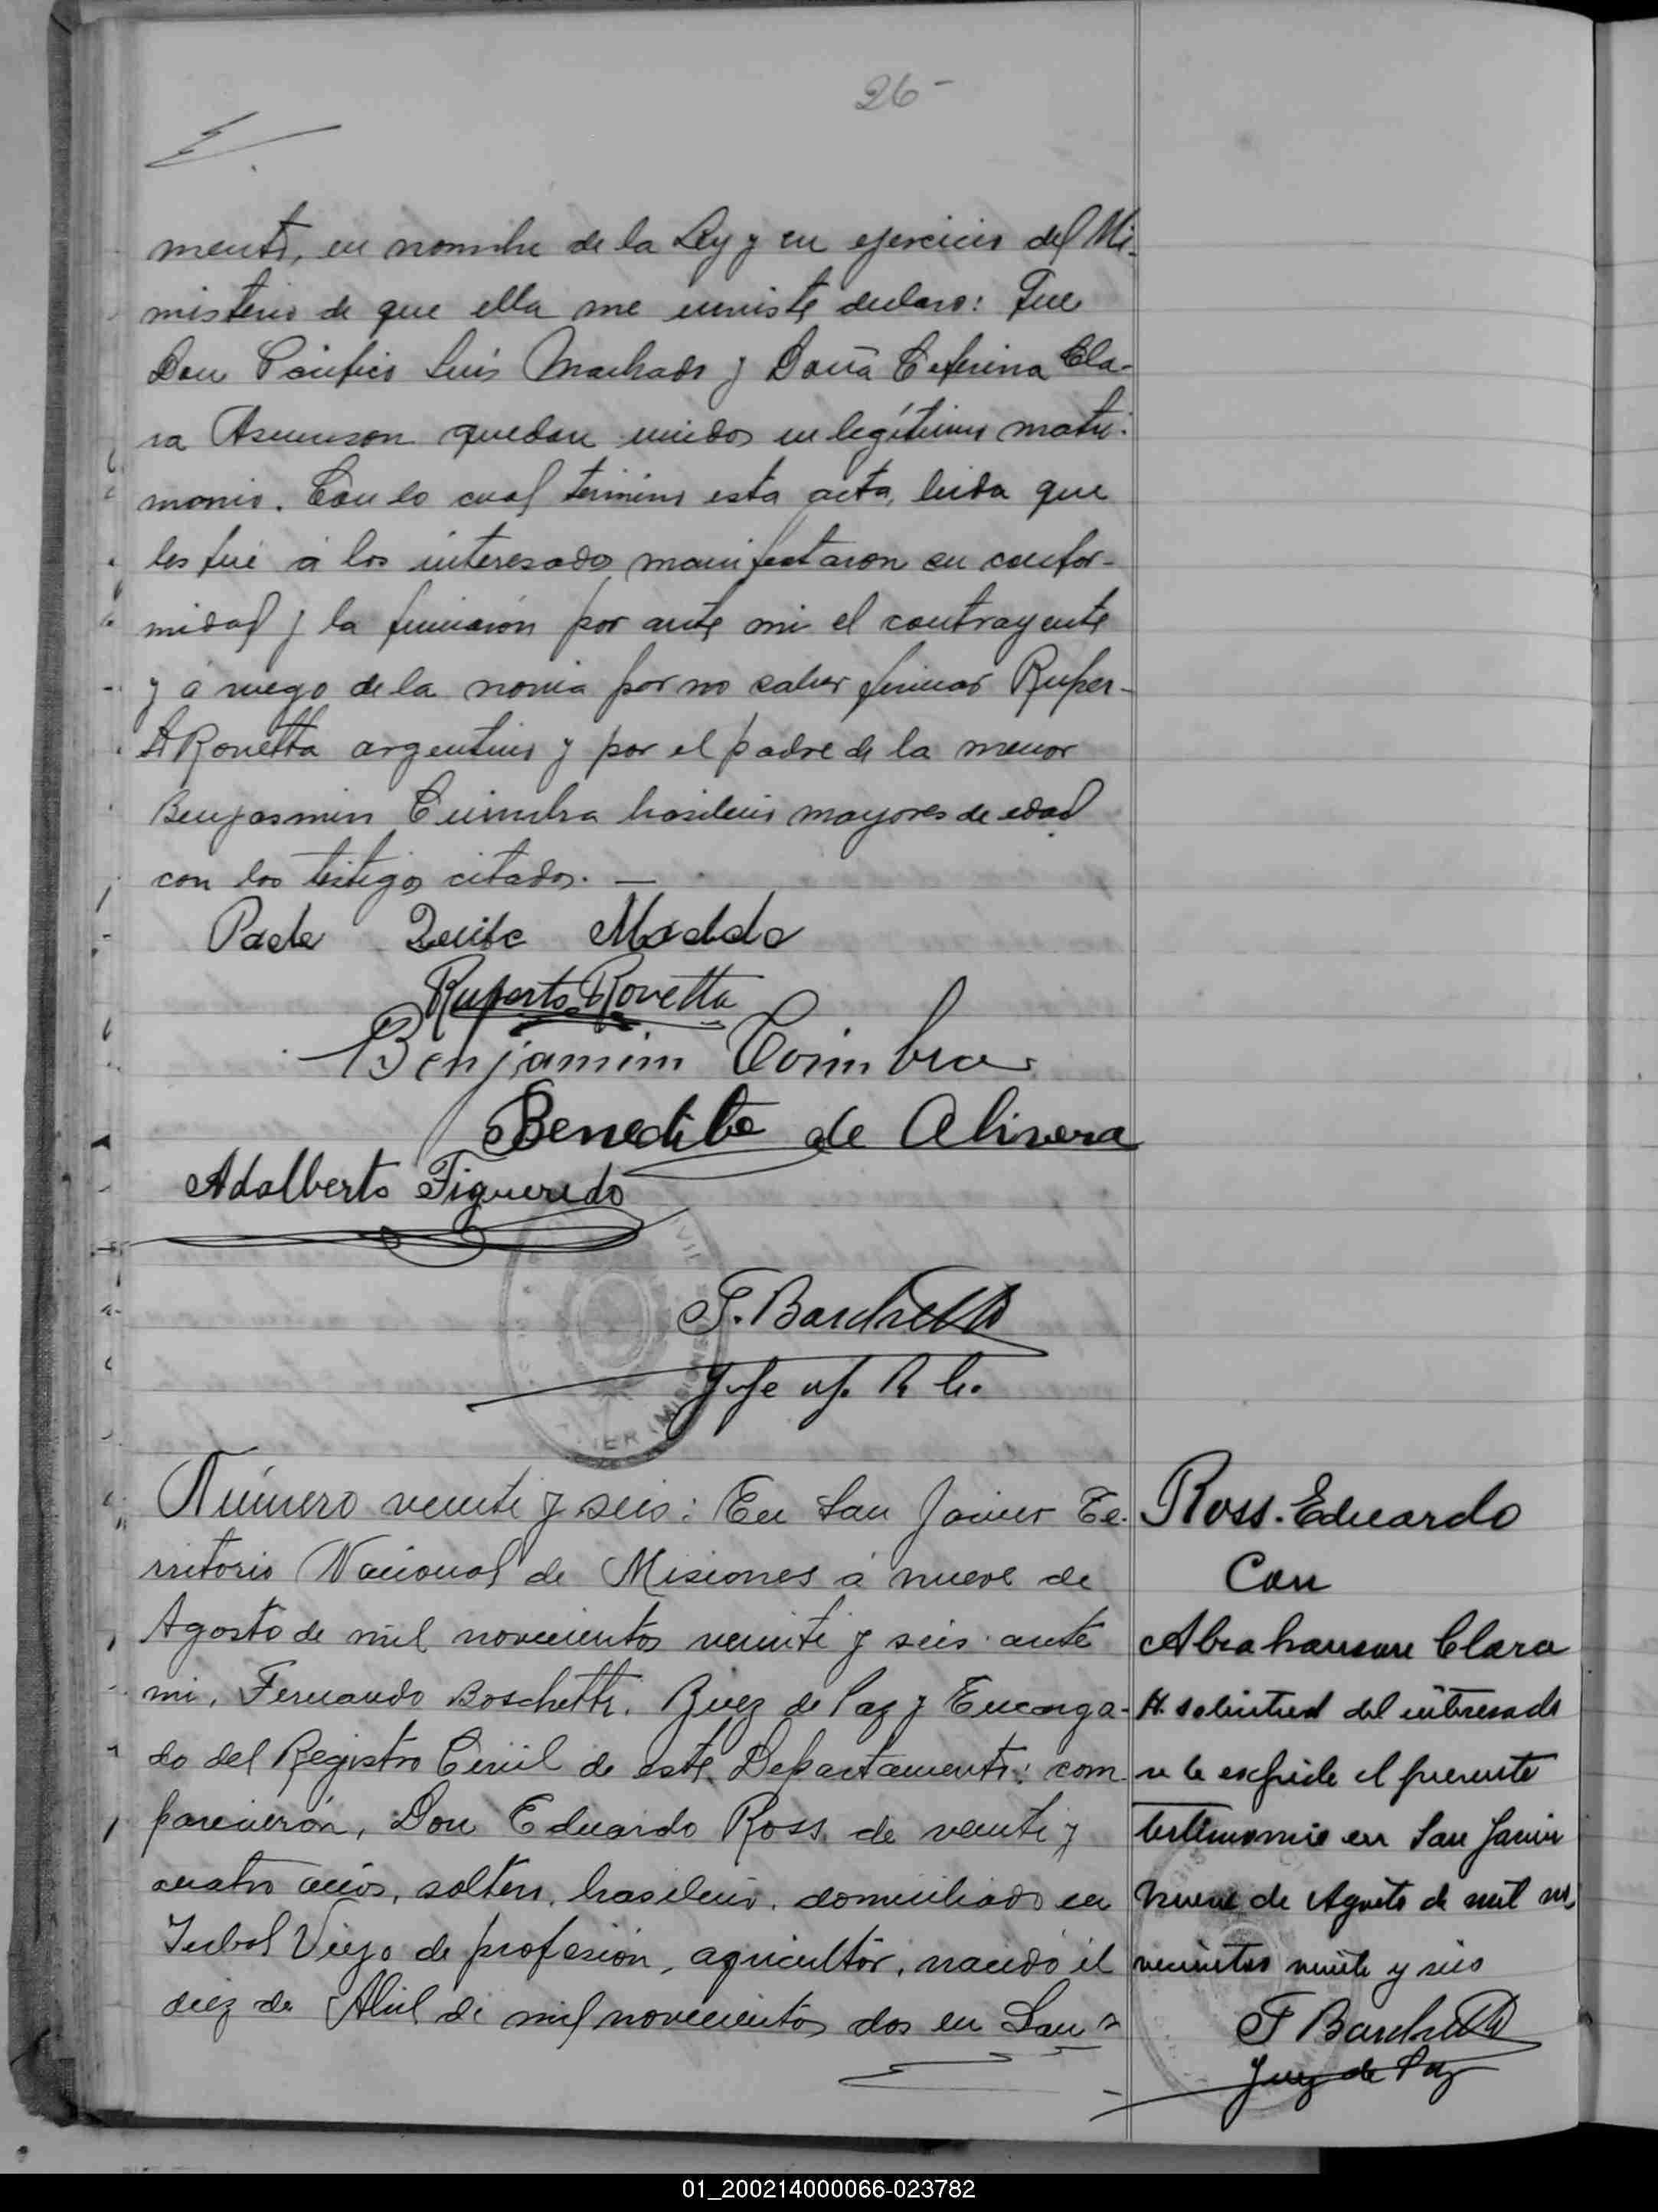 26-
mento, en nombre de la Ley y en ejercicio del Mi-
nisterio de que ella me inviste declaro: Que
Don Pacifico Luis Machado y Doña Ceferina Cla-
ra Asunson quedan unidos en legítimo matri-
monio. Con lo cual termino esta acta, leida que
les fué á los interesado manifestaron su confor-
midad y la firmaron por ante mi el contrayente
y á ruego de la novia por no saber firmar Ruper-
to Rovetta argentino y por el padre de la menor
Benjasmin Cuimbra brasilero mayores de edad
con los testigos citados. —
Ruperto Rovetta
Benjamim Coimbra
Benedito de Olivera
Adalberto Figueredo
F. Boschetti
Jefe of. R. C.
Número veinte y seis: En San Javier Te-
rritorio Nacional de Misiones á nueve de
Agosto de mil novecientos veinte y seis ante
mi, Fernando Boschetti. Juez de Paz y Encarga-
do del Registro Civil de este Departamento: com-
parecieron, Don Eduardo Ross de veinte y
cuatro años, soltero, brasilero, domiciliado en
Yerbal Viejo de profesion, agricultor, nacido él
diez de Abril de mil novecientos dos en San
Ross. Eduardo
Con
Abrahanson Clara
A solicitud del interesado
se le expide el presente
testimonio en San Javier
nueve de Agosto de mil no
vecientos veinte y seis
F Boschetti
Juez de Paz
MISIONES
01_200214000066-023782